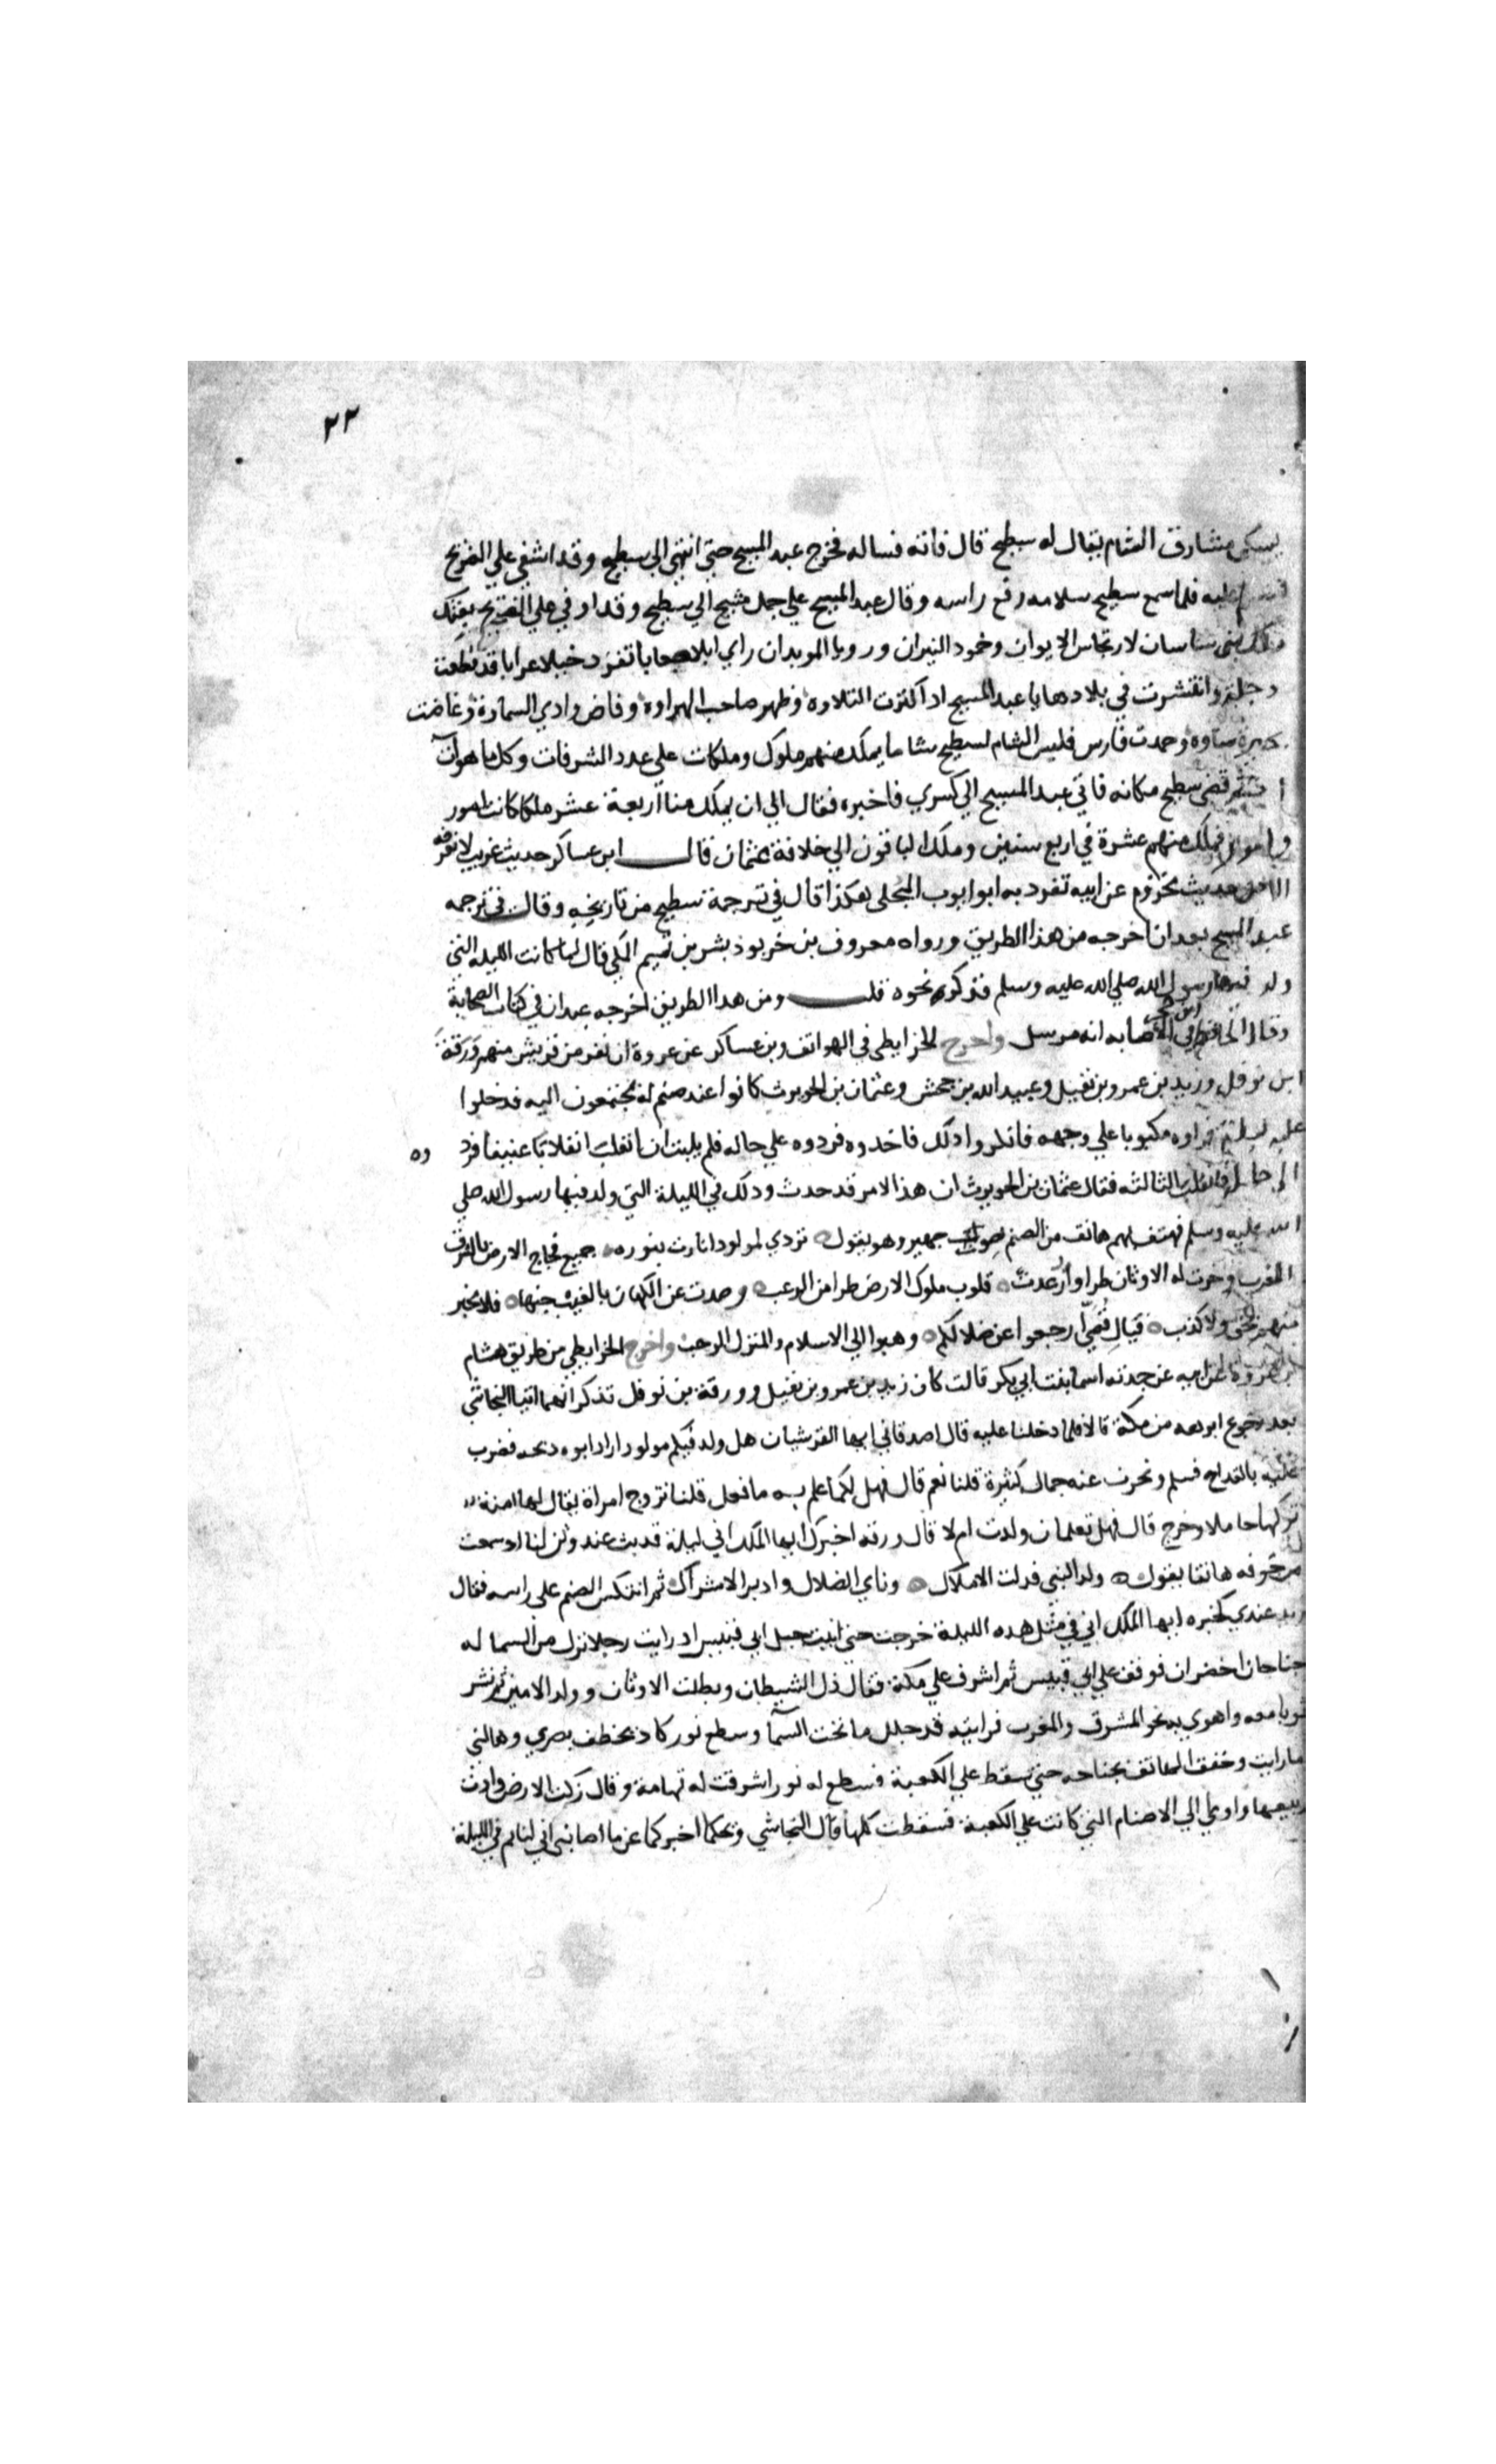 ٢٢
يسكن مشارق الشام يقال له سطيح قال فاته فساله فخرج عبد المسيح حتى انتهى الي سطيح وقد اشفي علي الضريح
عليه فلما سمع سطيح سلامه رفع راسه وقال عبد المسيح علي جمل مشيح الي سطيح وقد اوفي علي الضريح بعثك
ملك بني ساسان لارتجاس الايوان وخمود النيران ورويا الموبدان راي ابلا صعابا تقود خيلا عرابا قد قطعت
دجلة وانتشرت في بلادها يا عبد المسيح ادا اكثرت التلاوه وظهر صاحب الهراوه وفاض وادي السماوة وغاضت
بحيرة ساوه وخمدت فارس فليس الشام لسطيح شاما يملك منهم ملوك وملكات علي عدد الشرفات وكل ما هو آت
ثم قضي سطيح مكانه فاتي عبد المسيح الي كسري فاخبره فقال الي ان يملك منا اربعة عشر ملكا كانت امور
وامور فملك منهم عشرة في اربع سنين وملك الباقون الي خلافة عثمان قال ابن عساكر حديث غريب لا نعرفه
الا من حديث مخزوم عن ابيه تفرد به ابو ايوب البجلي هكذا قال في ترجمة سطيح من تاريخه وقال في ترجمه
عبد المسيح بعد ان اخرجه من هذا الطريق ورواه معروف بن خربوذ بشر بن تميم المكي قال لما كانت الليله التي
ولد فيها رسول الله صلي الله عليه وسلم فذكره نحوه قلت ومن هدا الطريق اخرجه عبدان في كتاب الصحابة
وقال الحافظ ابن حجر في الاصابه انه مرسل واخرج الخرايطي في الهواتف وبن عساكر عن عروة ان نفر من قريش منهم ورقة
ابن نوفل وزيد بن عمرو بن نفيل وعبيد الله بن جحش وعثمان بن الحويرث كانوا عند صنم له يجتمعون اليه فدخلوا
عليه ليلة فراوه مكبوبا علي وجهه فانكروا دلك فاخدوه فردوه علي حاله فلم يلبث ان انقلب انقلابا عنيفا فردوه
الي حاله فانقلب الثالثه فقال عثمان بن الحويرث ان هذا الامر قد حدث ودلك في الليلة التي ولد فيها رسول الله صلي
الله عليه وسلم فهتف بهم هاتف من الصنم بصوت جهير وهو يقول تردي لمولود انارت بنوره جميع فجاج الارض بالشرق
المغرب وخرت له الاوثان طرا وارعدت قلوب ملوك الارض طرا من الرعب وصدت عن الكهان بالغيب جنها فلا مخبر
منهم بحق ولا كذب فيال قصي ارجعوا عن ضلالكم وهبوا الي الاسلام والمنزل الرحب واخرج الخرايطي من طريق هشام
بن عروة عن ابيه عن جدته اسما بنت ابي بكر قالت كان زيد بن عمرو بن نفيل وورقة بن نوفل تذكر انهما اتيا النجاشي
بعد رجوع ابرهه من مكة قالا فلما دخلنا عليه قال اصدقاني ايها القرشيان هل ولد فيكم مولود اراد ابوه دبحه فضرب
عليه بالقداح فسلم ونحرت عنه جمال كثيرة قلنا نعم قال فهل لكما علم به ما فعل قلنا تزوج امراة يقال لها امنة
تركها حاملا وخرج قال فهل تعلمان ولدت ام لا قال ورقه اخبرك ايها الملك اني ليلة قد بت عند وثن لنا اد سمعت
من جوفه هاتفا يقول ولد النبي فدلت الاملاك وناي الضلال وادبر الاشراك ثم انتكس الصنم على راسه فقال
زيد عندي كخبره ايها الملك اني في مثل هده الليلة خرجت حتي اتيت جبل ابي قبيس اد رايت رجلا نزل من السما له
جناحان اخضران فوقف علي ابي قبيس ثم اشرف علي مكة فقال ذل الشيطان وبطلت الاوثان وولد الامين ثم نشر
ثوبا معه واهوي به نحو المشرق والمغرب فرايته قد جلل ما تحت السما وسطع نور كاد يخطف بصري وهالني
ما رايت وخفق الهاتف بجناحه حتي سقط علي الكعبة فسطع له نور اشرقت له تهامة وقال زكت الارض وادت
ربيعها واومي الي الاصنام التي كانت علي الكعبة فسقطت كلها قال النجاشي ويحكما اخبركما عن ما اصابني اني لنايم في الليلة